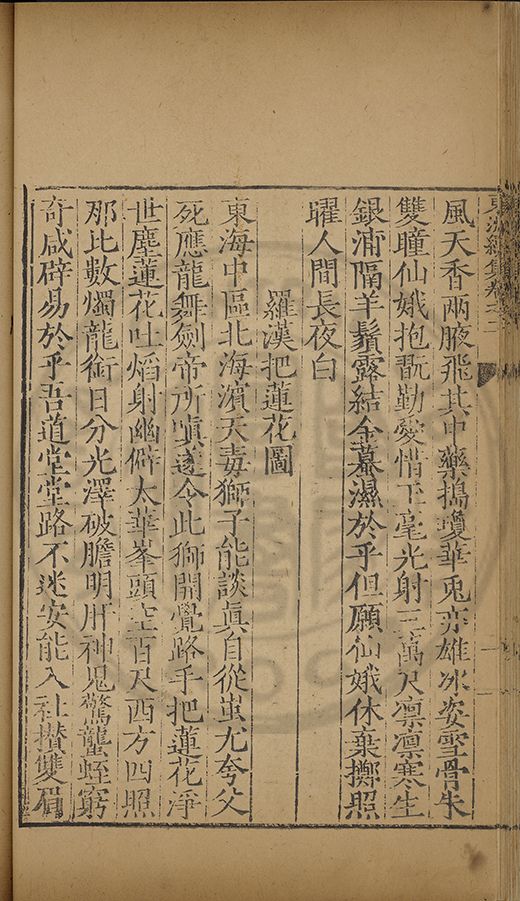 風天香兩腋飛其中藥搗瓊華兎亦雄冰姿雪骨朱
雙瞳仙娥抱翫勤愛惜玉毫光射三萬尺凛凛寒生
銀浦隔羊鬚露結金莖濕於乎但願仙娥休棄擲照
耀人間長夜白
羅漢把蓮花圖
東海中區北海濱天毒獅子能談眞自從蚩尤夸父
死應龍舞劍帝所嗔遂令此獅開覺路手把蓮花淨
世塵蓮花吐熖射幽僻太華峯頭空百尺西方四照
那比數燭龍銜日分光澤破膽明肝神鬼驚蠯蛭窮
奇咸辟易於乎吾道堂堂路不迷安能入社攅雙眉